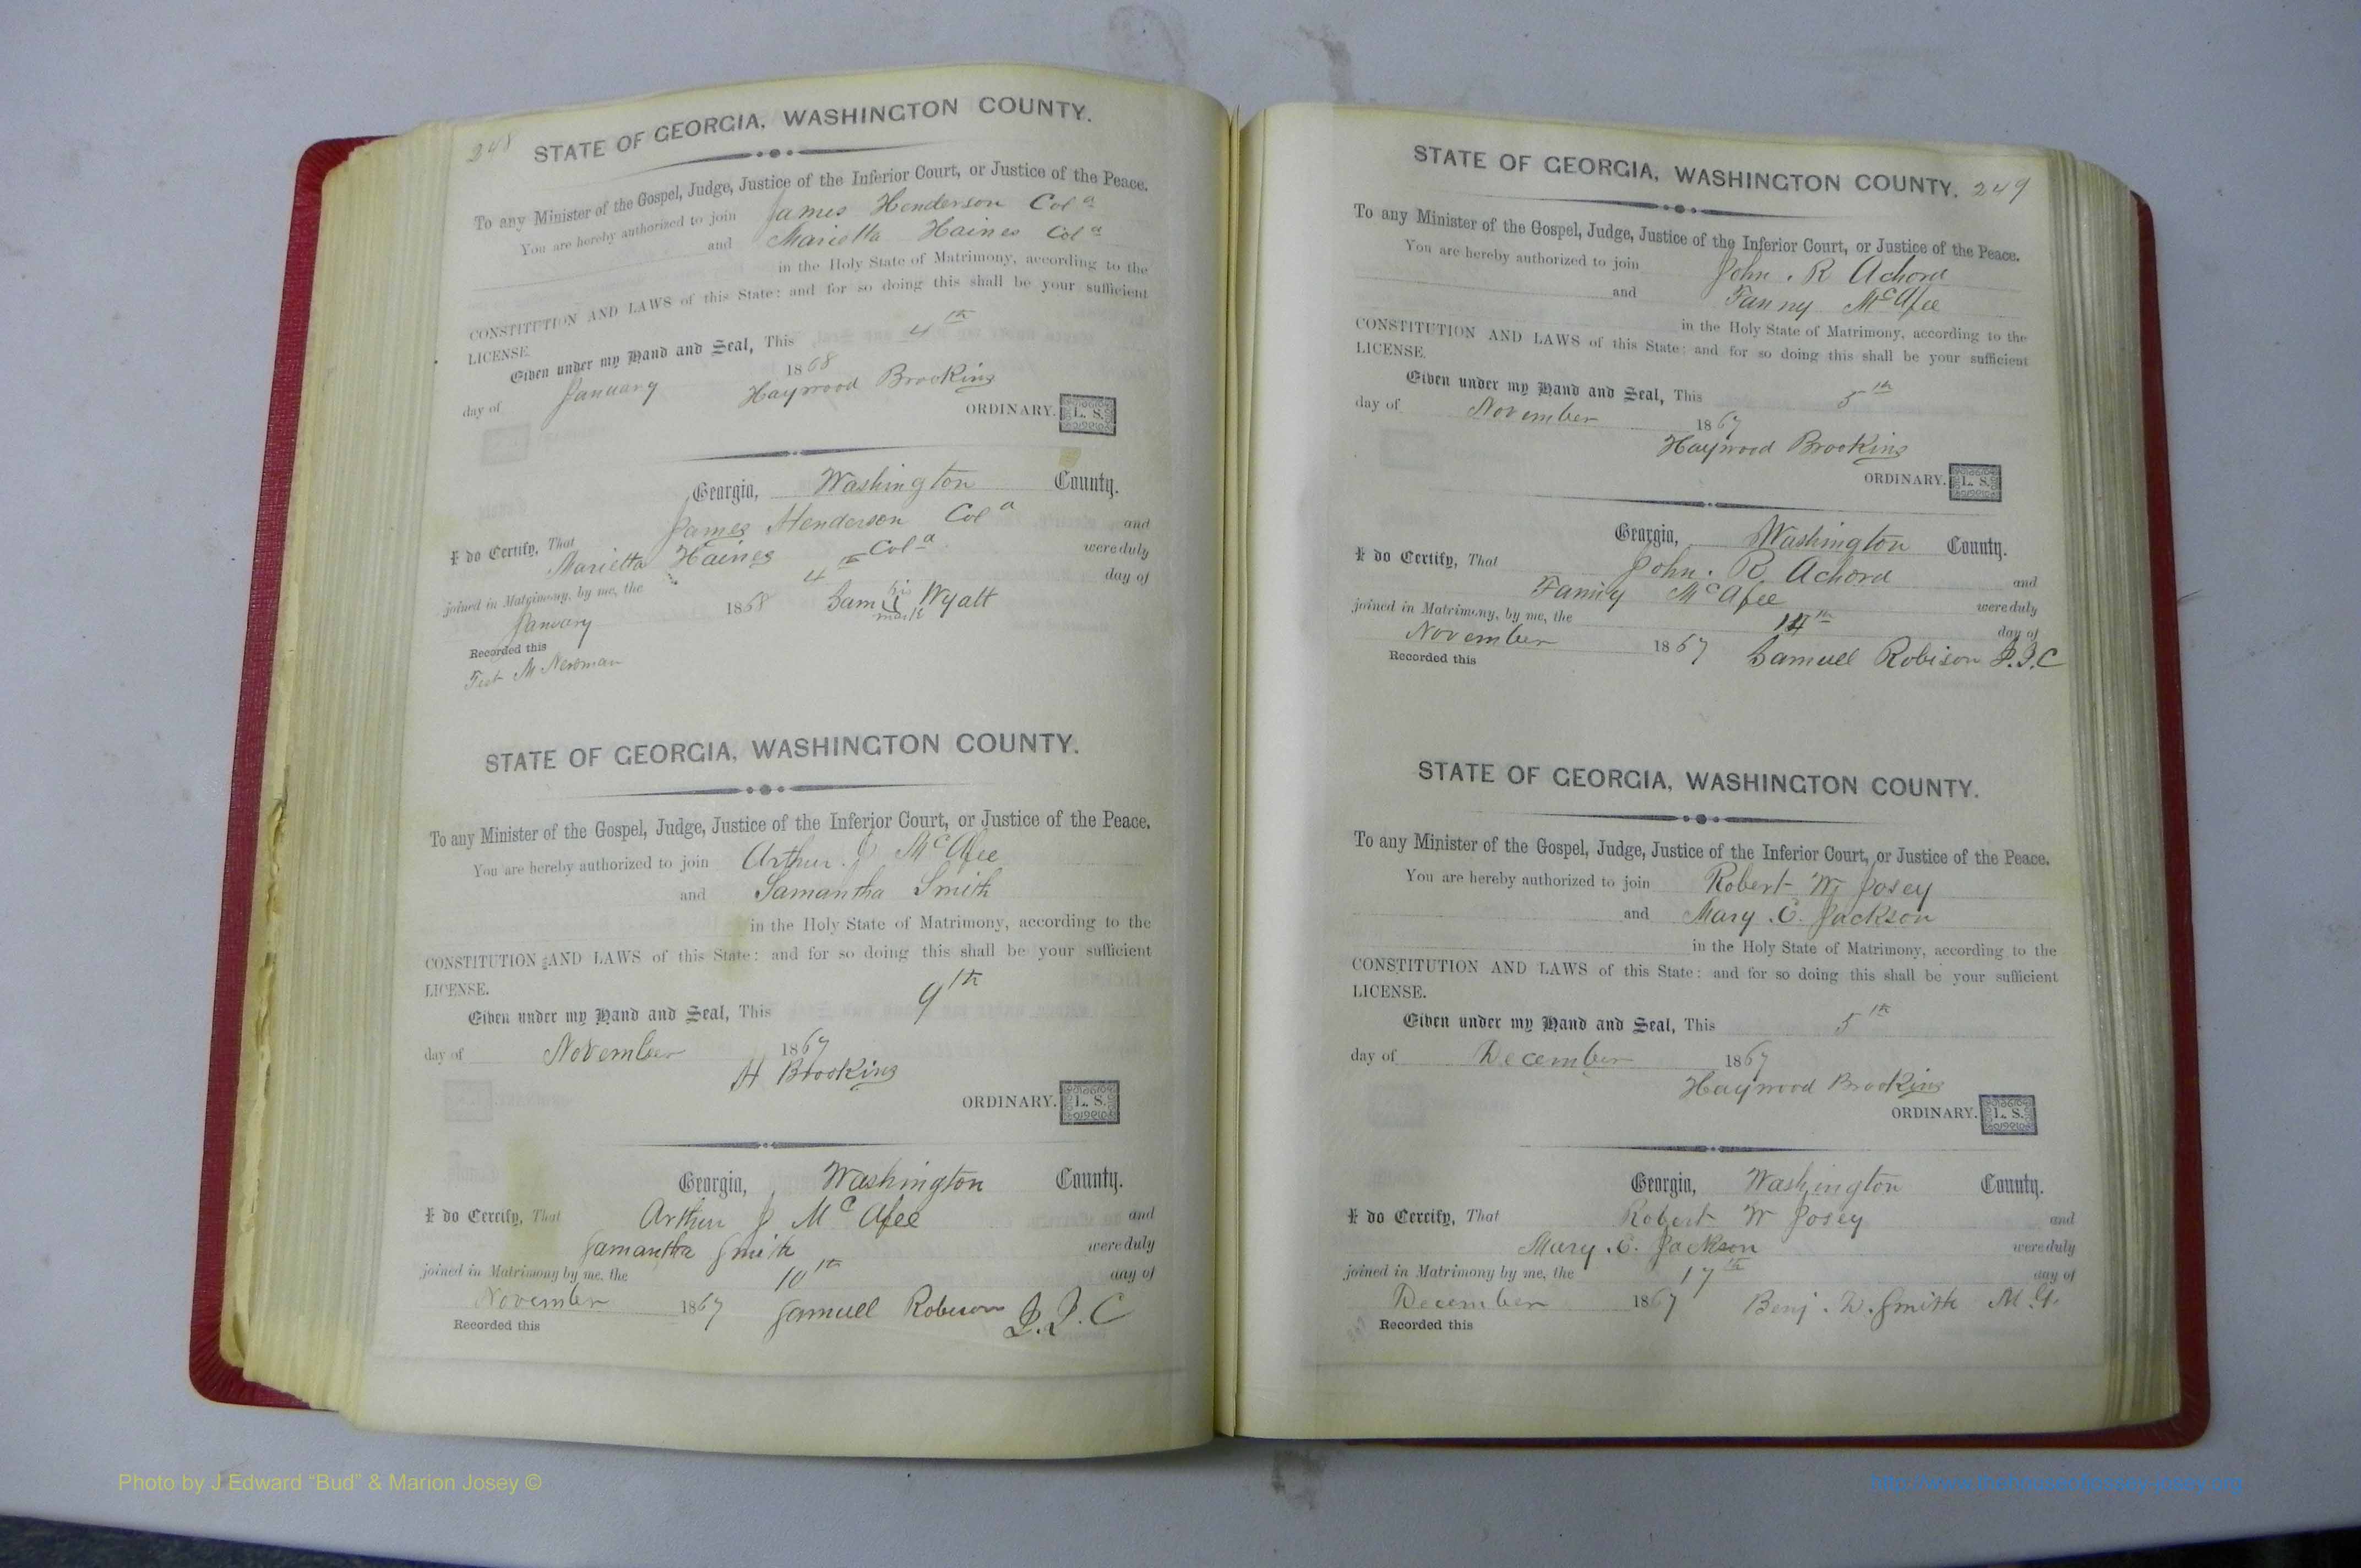 248
STATE OF GEORGIA, WASHINGTON COUNTY.
To any Minister of the Gospel, Judge, Justice of the Inferior Court, or Justice of the Peace.
You are hereby authorized to join James Henderson Col a
and Marietta Haines Col a
in the Holy State of Matrimony, according to the
CONSTITUTION AND LAWS of this State: and for so doing this shall be your sufficient
LICENSE.
Given under my Hand and Seal, This 4th
day of January 1868
Haywood Brookins
ORDINARY. L. S.
Georgia, Washington County.
I do Certify, That James Henderson Col a and
Marietta Haines Col a were duly
joined in Matrimony, by me, the 4th day of
January 1868 Sam his mark Wyatt
Recorded this
Test M Newman
STATE OF GEORGIA, WASHINGTON COUNTY.
To any Minister of the Gospel, Judge, Justice of the Inferior Court, or Justice of the Peace.
You are hereby authorized to join Arthur J McAfee
and Samantha Smith
in the Holy State of Matrimony, according to the
CONSTITUTION AND LAWS of this State: and for so doing this shall be your sufficient
LICENSE.
Given under my Hand and Seal, This 9th
day of November 1867
H Brookins
ORDINARY. L. S.
Georgia, Washington County.
I do Certify, That Arthur J McAfee and
Samantha Smith were duly
joined in Matrimony by me, the 10th day of
November 1867 Samuell Robison J.I.C
Recorded this
STATE OF GEORGIA, WASHINGTON COUNTY. 249
To any Minister of the Gospel, Judge, Justice of the Inferior Court, or Justice of the Peace.
You are hereby authorized to join John . R Achord
and Fanny McAfee
in the Holy State of Matrimony, according to the
CONSTITUTION AND LAWS of this State: and for so doing this shall be your sufficient
LICENSE.
Given under my Hand and Seal, This 5th
day of November 1867
Haywood Brookins
ORDINARY. L. S.
Georgia, Washington County.
I do Certify, That John . R. Achord and
Fanny McAfee were duly
joined in Matrimony, by me, the 14th day of
November 1867 Samuell Robison J.I.C
Recorded this
STATE OF GEORGIA, WASHINGTON COUNTY.
To any Minister of the Gospel, Judge, Justice of the Inferior Court, or Justice of the Peace.
You are hereby authorized to join Robert W Josey
and Mary . E. Jackson
in the Holy State of Matrimony, according to the
CONSTITUTION AND LAWS of this State: and for so doing this shall be your sufficient
LICENSE.
Given under my Hand and Seal, This 5th
day of December 1867
Haywood Brookins
ORDINARY. L. S.
Georgia, Washington County.
I do Certify, That Robert W Josey and
Mary . E. Jackson were duly
joined in Matrimony by me, the 17th day of
December 1867 Benj . W. Smith M.G.
Recorded this
Photo by J Edward “Bud” & Marion Josey ©